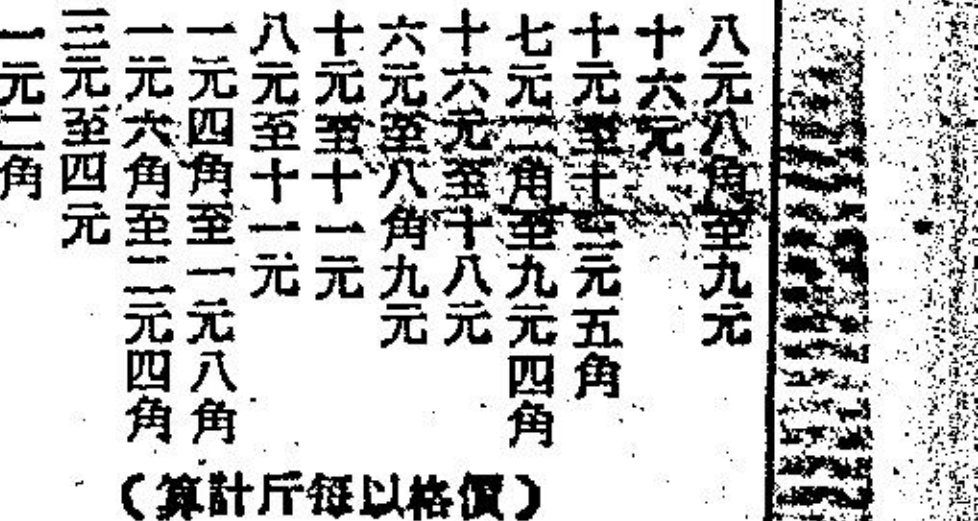 八元八角至九元
十六元
十元至十三元五角
七元二角至九元四角
十六元至十八元
六元至八角九元
十元至十一元
八元至十一元
一元四角至一元八角
一元六角至二元四角
三元至四元
一元二角
（價格以每斤計算）